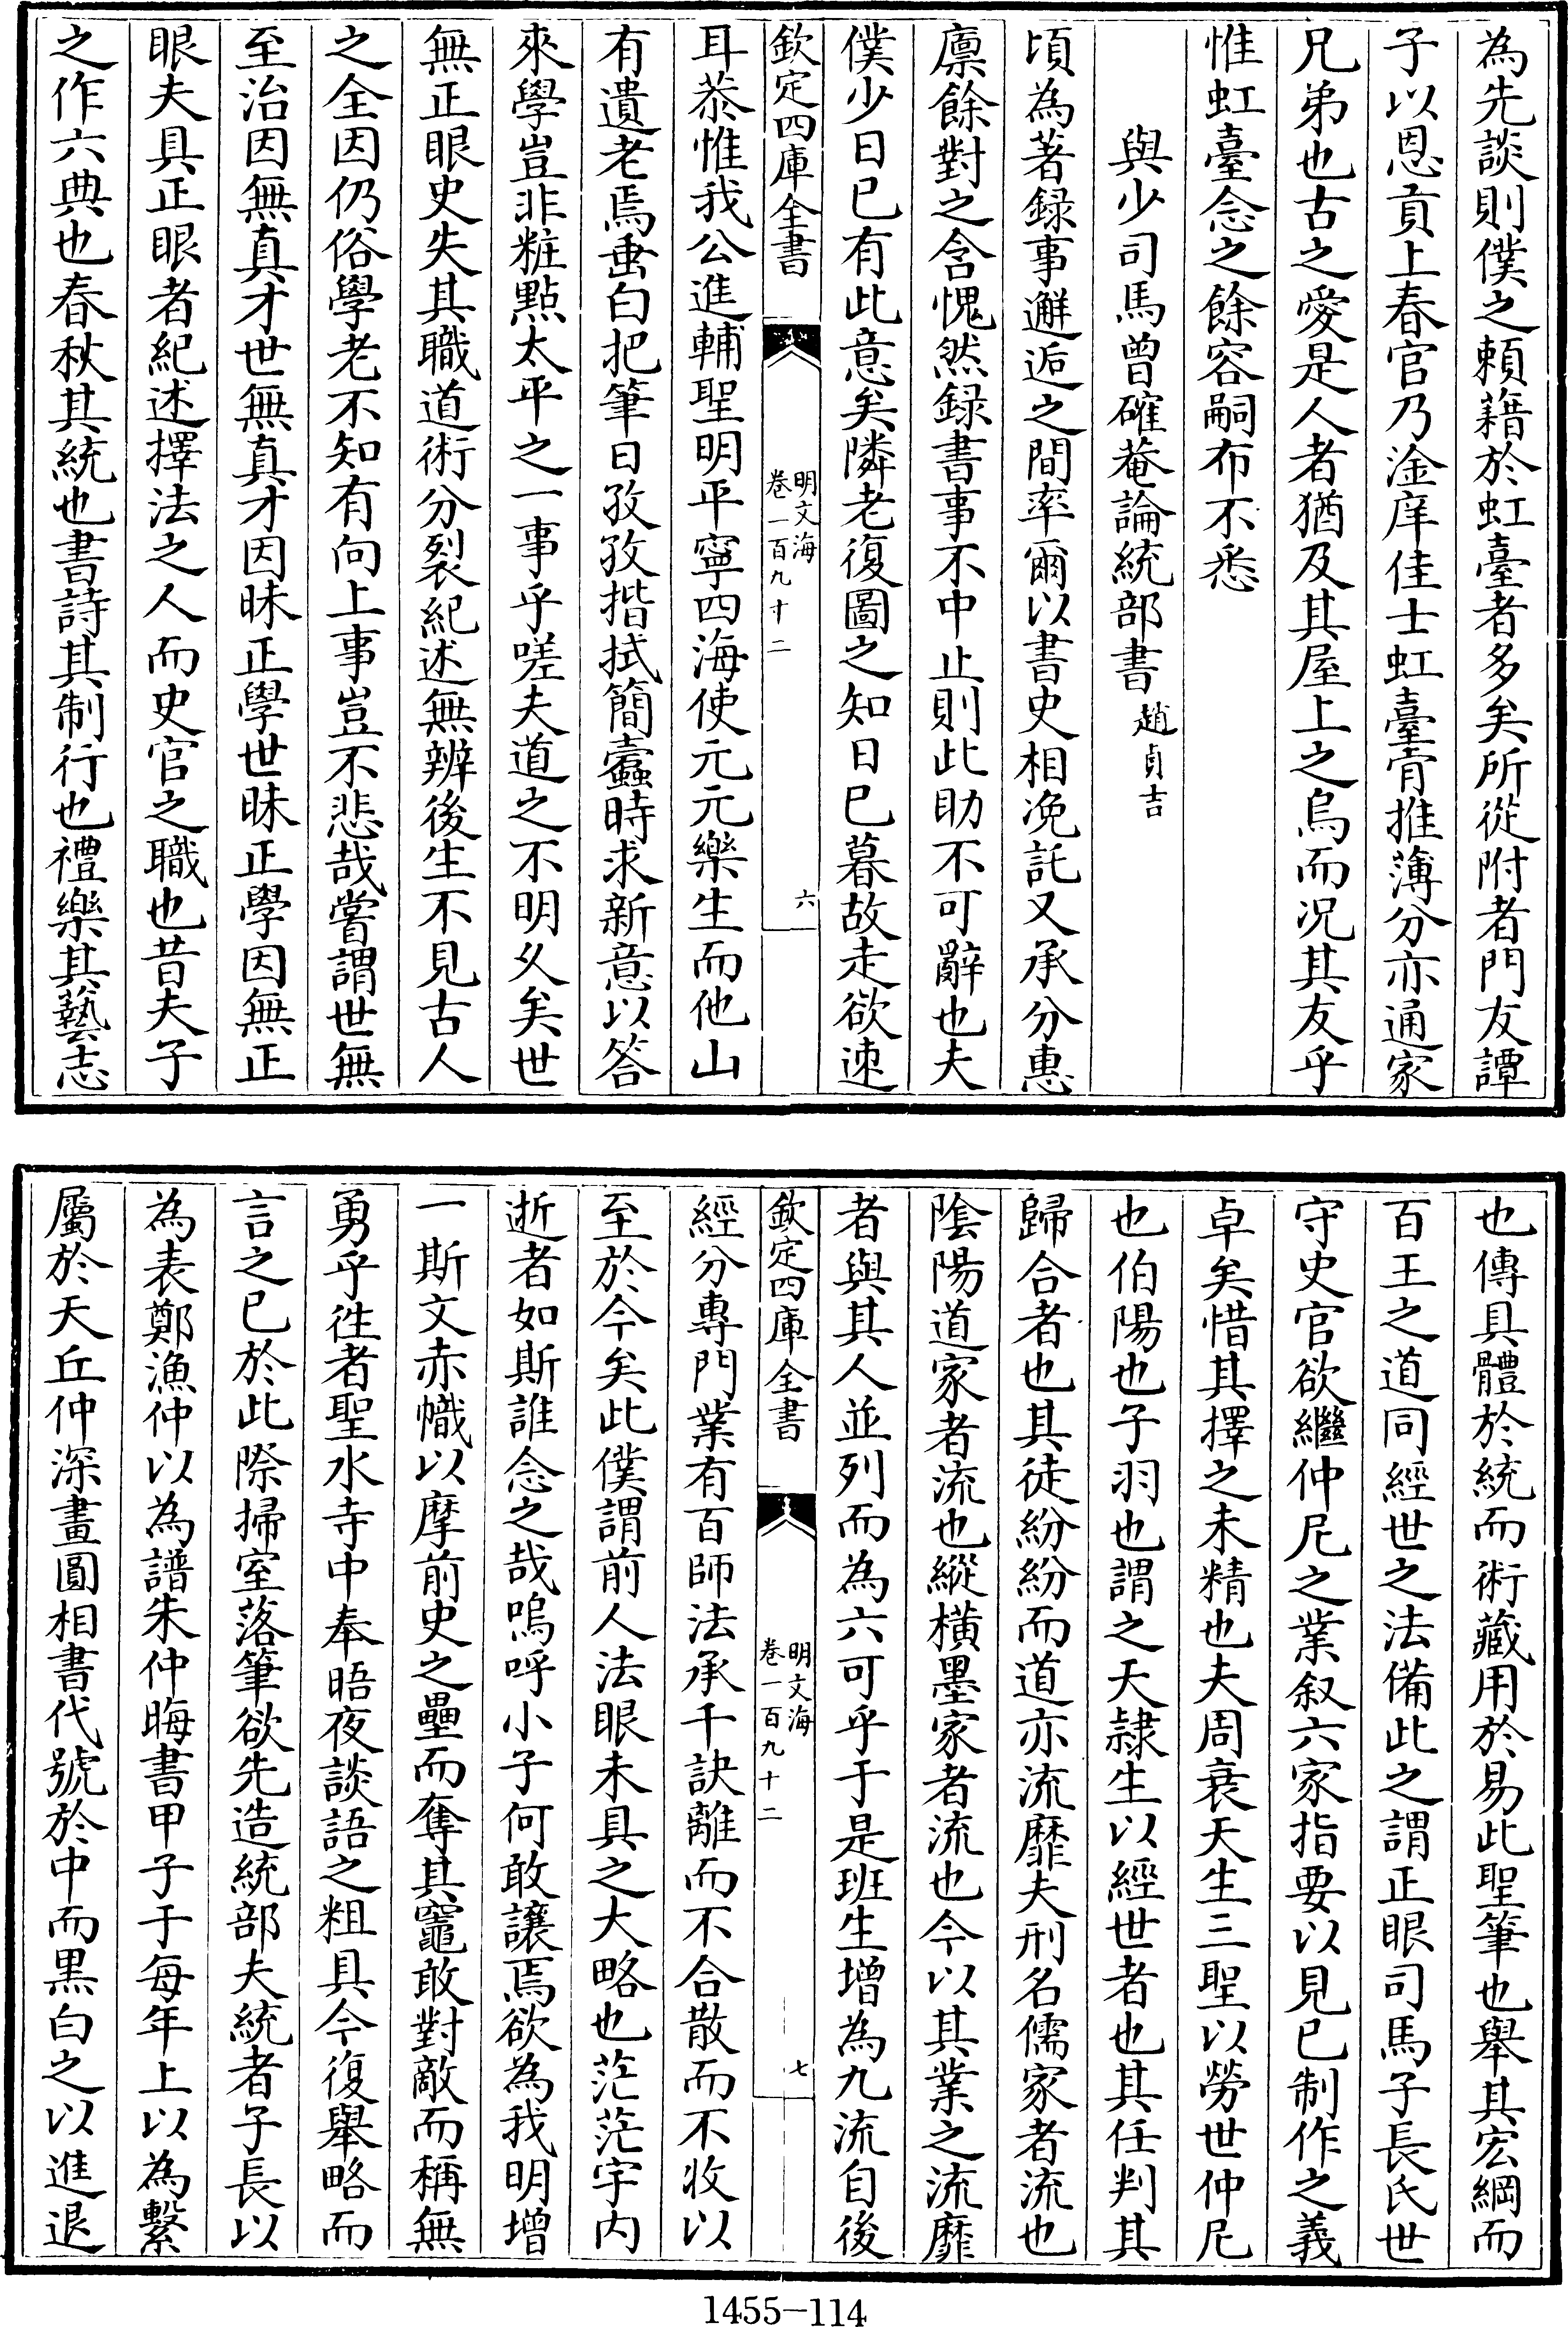 為先談則僕之頼藉於虹臺者多矣所從附者門友譚
子以恩貢上春官乃淦庠佳士虹臺肯推薄分亦通家
兄弟也古之愛是人者猶及其屋上之烏而况其友乎
惟虹臺念之餘容嗣布不悉
與少司馬曾確菴論統部書 趙貞吉
頃為著録事邂逅之間率爾以書史相凂託又承分惠
廪餘對之含愧然録書事不中止則此助不可辭也夫
僕少日已有此意矣隣老復圖之知日已暮故走欲速
欽定四庫全書 明文海 卷一百九十二 六
耳恭惟我公進輔聖明平寧四海使元元樂生而他山
有遺老焉垂白把筆日孜孜揩拭簡蠧時求新意以答
來學豈非粧點太平之一事乎嗟夫道之不明久矣世
無正眼史失其職道術分裂紀述無辨後生不見古人
之全因仍俗學老不知有向上事豈不悲哉嘗謂世無
至治因無真才世無真才因昧正學世昧正學因無正
眼夫具正眼者紀述擇法之人而史官之職也昔夫子
之作六典也春秋其統也書詩其制行也禮樂其藝志
也傳具體於統而術藏用於易此聖筆也舉其宏綱而
百王之道同經世之法備此之謂正眼司馬子長氏世
守史官欲繼仲尼之業叙六家指要以見已制作之義
卓矣惜其擇之未精也夫周衰天生三聖以勞世仲尼
也伯陽也子羽也謂之天隷生以經世者也其任判其
歸合者也其徒紛紛而道亦流靡夫刑名儒家者流也
隂陽道家者流也縱橫墨家者流也今以其業之流靡
者與其人並列而為六可乎于是班生增為九流自後
欽定四庫全書 明文海 卷一百九十二 七
經分專門業有百師法承千訣離而不合散而不收以
至於今矣此僕謂前人法眼未具之大略也茫茫宇内
逝者如斯誰念之哉嗚呼小子何敢讓焉欲為我明增
一斯文赤幟以摩前史之壘而奪其竈敢對敵而稱無
勇乎徃者聖水寺中奉晤夜談語之粗具今復舉略而
言之已於此際掃室落筆欲先造統部夫統者子長以
為表鄭漁仲以為譜朱仲晦書甲子于每年上以為繫
屬於天丘仲深畫圓相書代號於中而黒白之以進退
1455-114